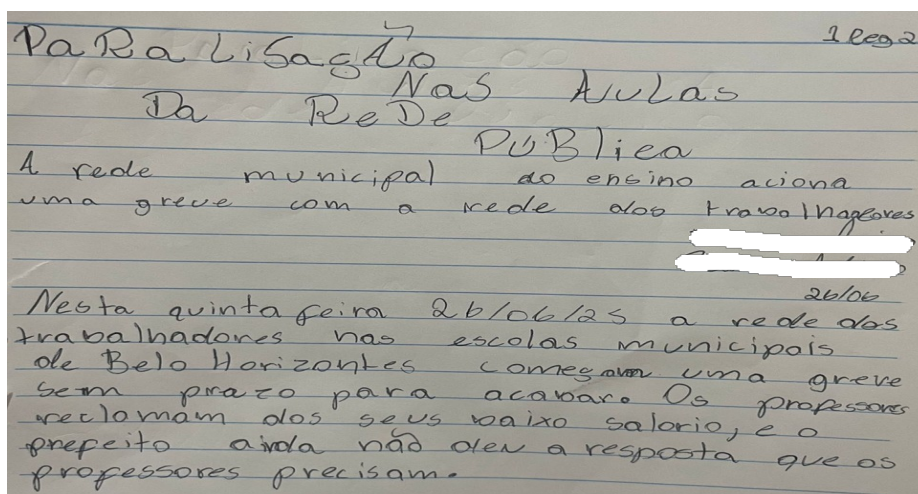 1 Reg 2
PaRaLiSação
Nas Aulas
Da ReDe
PÚBlica
A rede municipal do ensino aciona
uma greve com a rede dos trabalhadores
26/06
Nesta quinta feira 26/06/25 a rede dos
trabalhadores nas escolas municipais
de Belo Horizontes começam uma greve
sem prazo para acabar. Os professores
reclamam dos seus baixo salario, e o
prefeito ainda não deu a resposta que os
professores precisam.